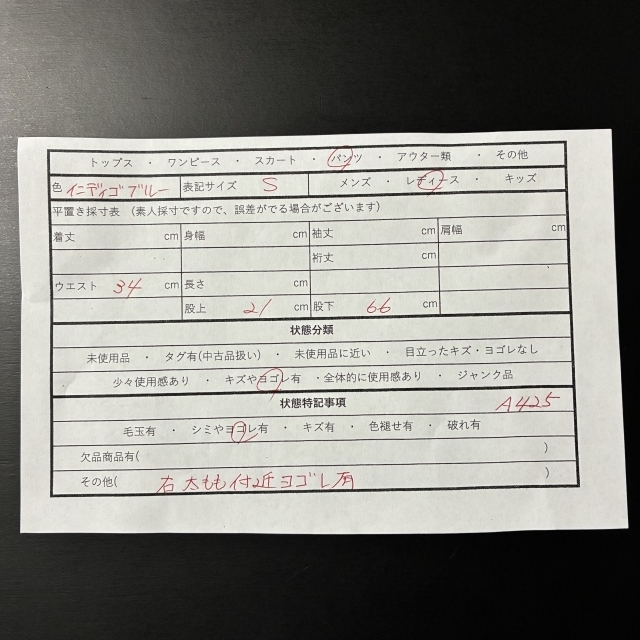 トップス ・ ワンピース ・ スカート ・ パンツ ・ アウター類 ・ その他
色 インディゴブルー 表記サイズ S メンズ ・ レディース ・ キッズ
平置き採寸表 （素人採寸ですので、誤差がでる場合がございます）
着丈 cm 身幅 cm 袖丈 cm 肩幅 cm
裄丈 cm
ウエスト 34 cm 長さ cm
股上 21 cm 股下 66 cm
状態分類
未使用品 ・ タグ有(中古品扱い) ・ 未使用品に近い ・ 目立ったキズ・ヨゴレなし
少々使用感あり ・ キズやヨゴレ有 ・全体的に使用感あり ・ ジャンク品
状態特記事項 A425
毛玉有 ・ シミやヨゴレ有 ・ キズ有 ・ 色褪せ有 ・ 破れ有
欠品商品有( )
その他( 右太もも付近ヨゴレ有 )